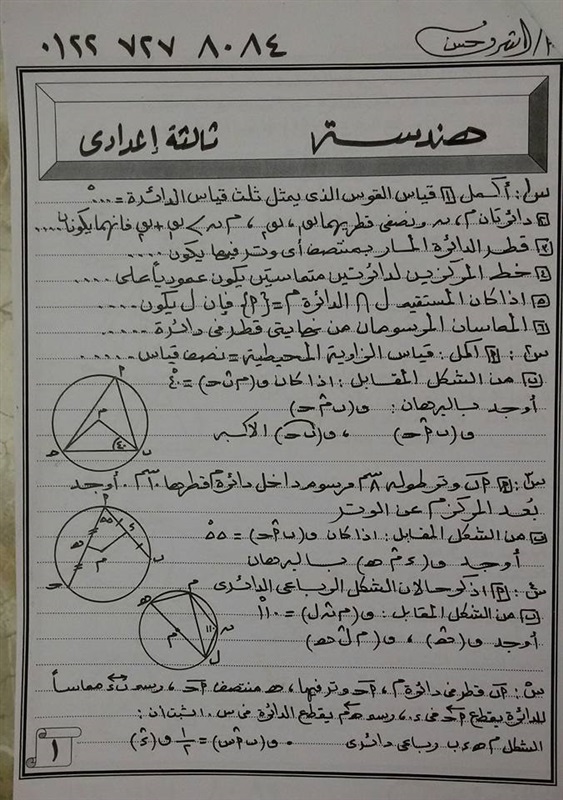 ٠١٢٢ ٧٢٧ ٨٠٨٤
أ/ أشرف حسن
هندسة ثالثة إعدادى
س١: أكمل ١ قياس القوس الذى يمثل ثلث قياس الدائرة = ....°
٢ دائرتان م، ن ونصفى قطريهما نق، نق، م ن > نق + نق فإنهما يكونان ....
٣ قطر الدائرة المار بمنتصف أى وتر فيها يكون ....
٤ خط المركزين لدائرتين متماستين يكون عمودياً على ....
٥ إذا كان المستقيم ل ∩ الدائرة م = {P} فإن ل يكون ....
٦ المماسان المرسومان من نهايتى قطر فى دائرة ....
س٢: P أكمل: قياس الزاوية المحيطية = نصف قياس ....
ب من الشكل المقابل: إذا كان ق(م ب ح) = ٤٠°
أوجد بالبرهان: ق(ب م ح)
ق(ب P ح) ، ق(ب ح) الأكبر
P م ٤٠ ح ب
س٣: P P ب وتر طوله ٨ سم مرسوم داخل دائرة م قطرها ١٠ سم. أوجد
بُعد المركز م عن الوتر
ب من الشكل المقابل: إذا كان ق(ب P ح) = ٥٥°
أوجد ق(ء م ه) بالبرهان
P ٥٥ ء ه م ب ح
س٤: P اذكر حالات الشكل الرباعى الدائرى
ب من الشكل المقابل: ق(م ن ل) = ١١٠°
أوجد ق(ه) ، ق(م ل ه)
م ه ١١٠ ن م ل
س٥: P ب قطر فى دائرة م، P ح وتر فيها، ه منتصف P ح، رسم ب ء مماساً
للدائرة يقطع P ح فى ء، رسم ه م يقطع الدائرة فى س. اثبت أن:
الشكل م ه ء ب رباعى دائرى ، ق(ب P س) = ١/٢ ق(ء)
١